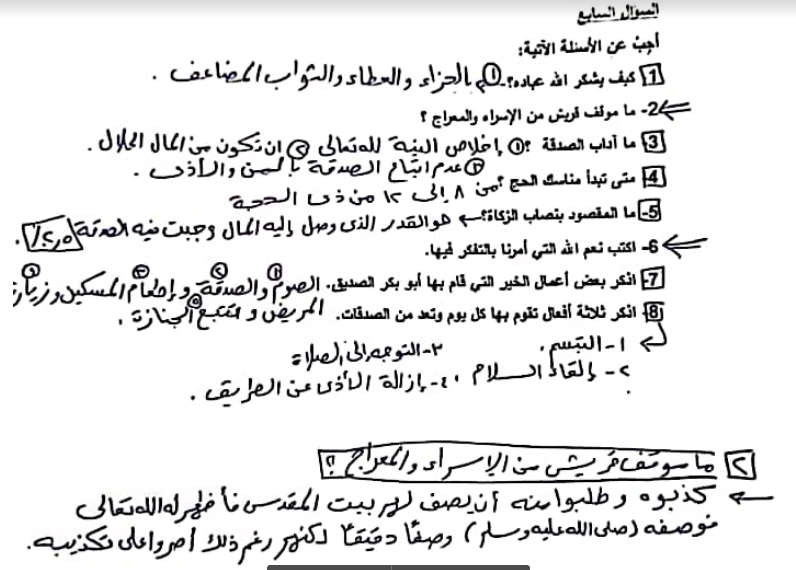 السؤال السابع
أجب عن الأسئلة الآتية:
1 كيف يشكر الله عباده؟ بالجزاء والعطاء والثواب المضاعف .
2- ما موقف قريش من الإسراء والمعراج ؟
3 ما آداب الصدقة ؟ ① إخلاص النية لله تعالى ② ان تكون من المال الحلال .
③ عدم اتباع الصدقة بالمن والأذى .
4 متى تبدأ مناسك الحج ؟ من ٨ إلى ١٢ من ذى الحجة
5- ما المقصود بنصاب الزكاة؟ هو القدر الذى وصل إليه المال وجبت فيه الصدقة ٢,٥٪ .
6- اكتب نعم الله التي أمرنا بالتفكر فيها.
7 اذكر بعض أعمال الخير التي قام بها أبو بكر الصديق. ① الصوم ② والصدقة ③ وإطعام المسكين ④ وزيارة
المريض ⑤ وتتبع الجنازة .
8 اذكر ثلاثة أفعال تقوم بها كل يوم وتعد من الصدقات.
١- التبسم . ٣- التوجه إلى الصلاة
٢- إلقاء السلام . ٤- إزالة الأذى عن الطريق .
٢ ما موقف قريش من الإسراء والمعراج ؟
كذبوه وطلبوا منه أن يصف لهم بيت المقدس فأظهر له الله تعالى
فوصفه (صلى الله عليه وسلم) وصفًا دقيقًا لكنهم رغم ذلك أصروا على تكذيبه.